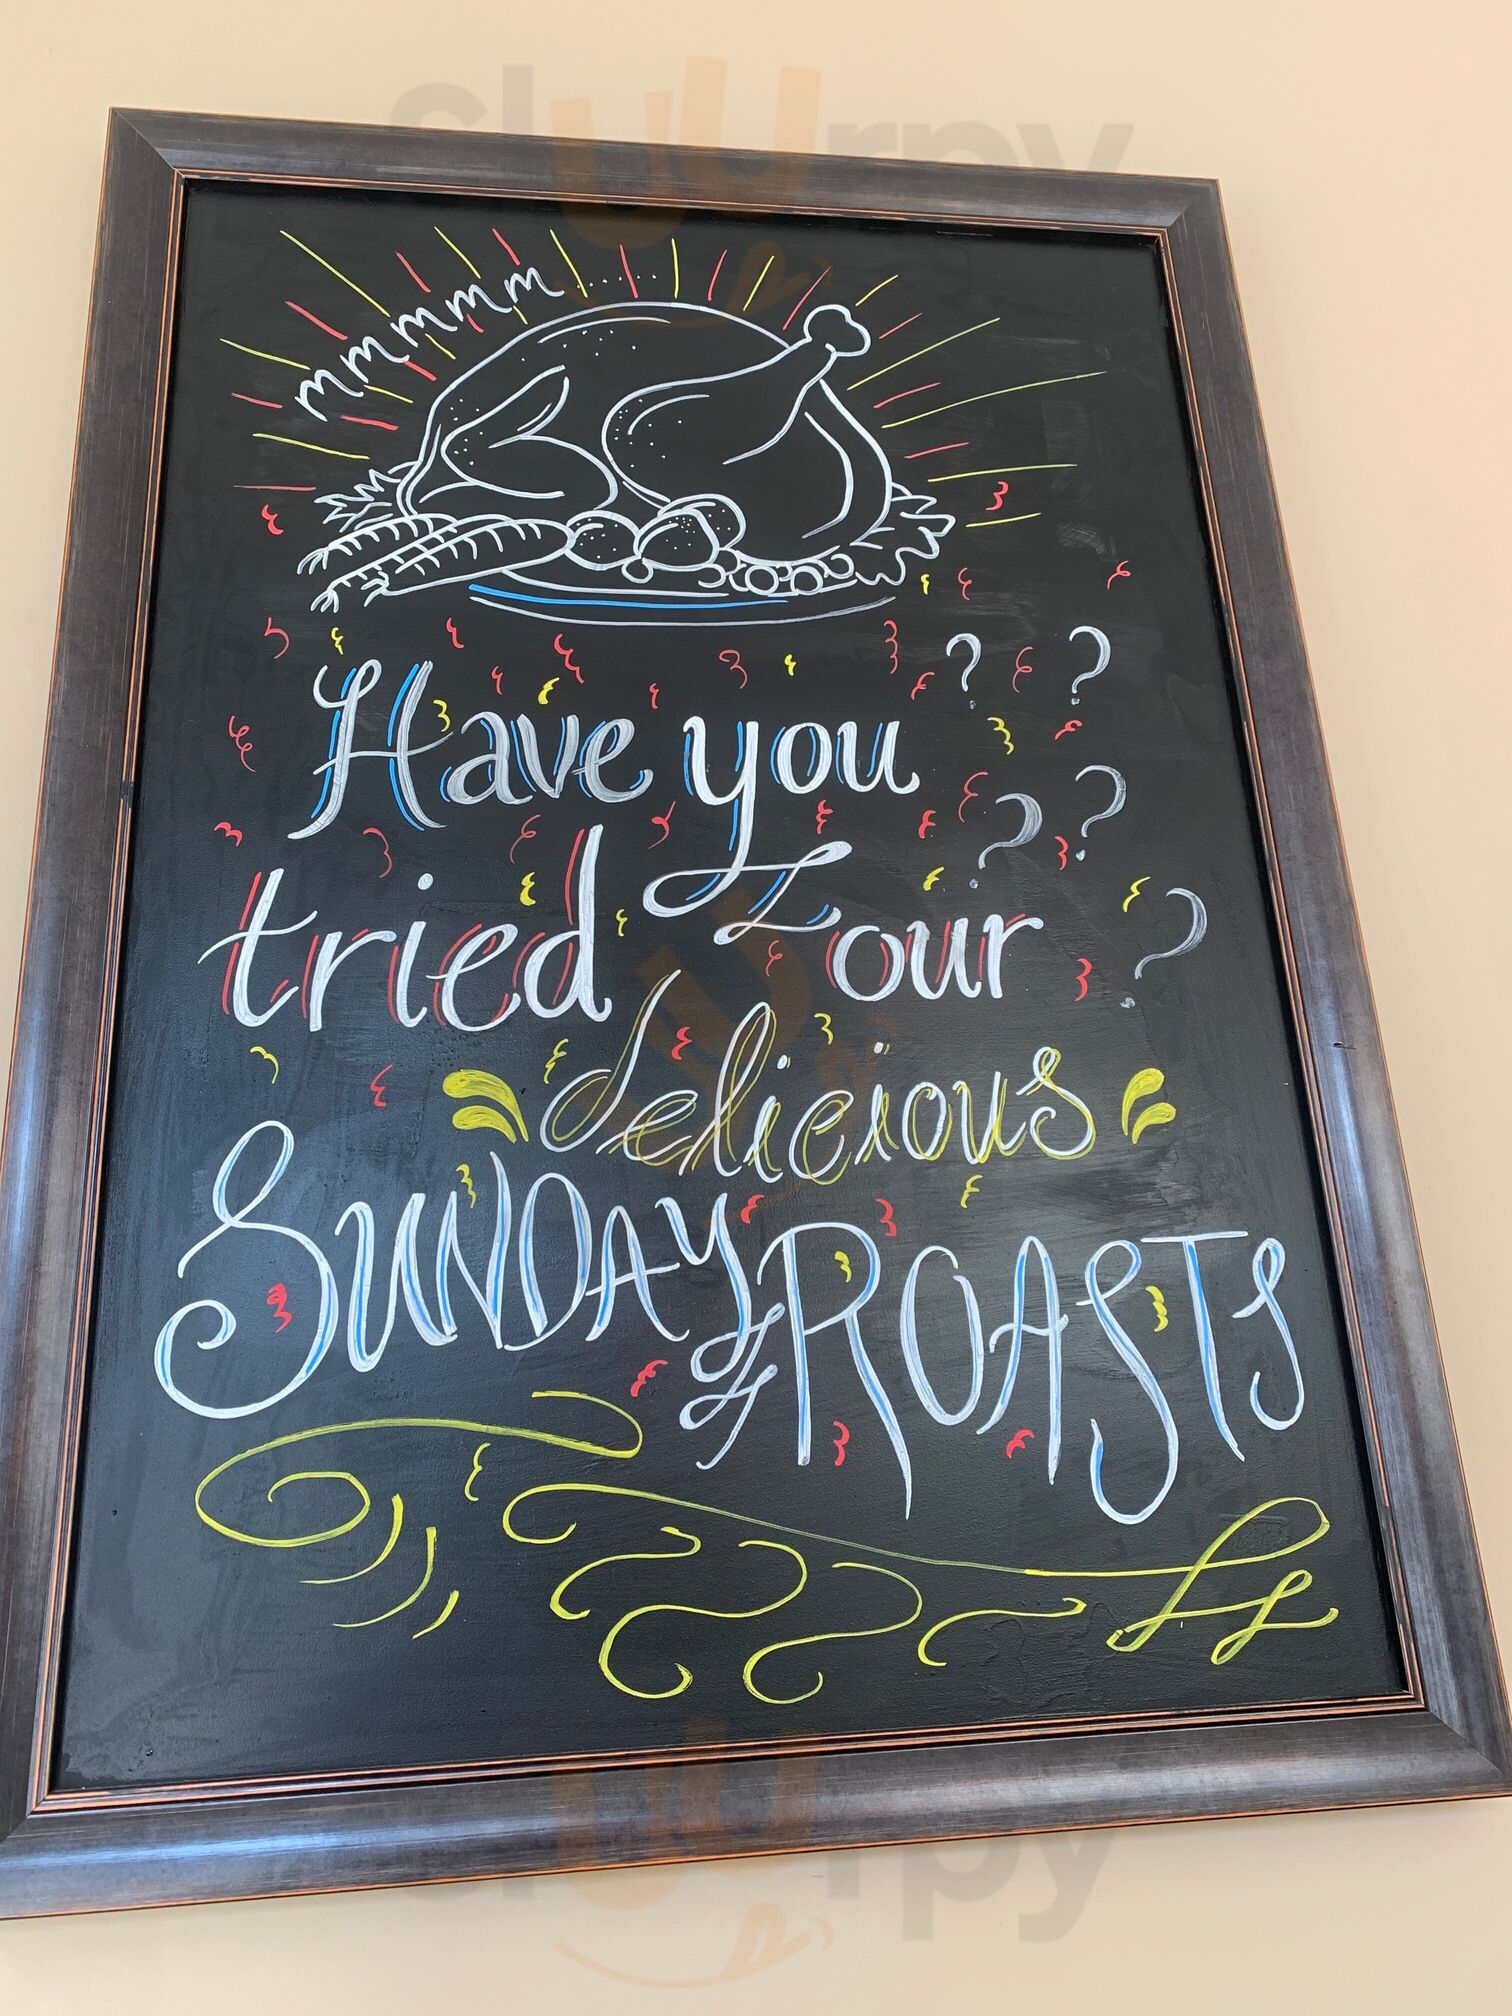 sluurpy
mmmmm.......
Have you ??
tried our ???
delicious
SUNDAY ROASTS
sluurpy